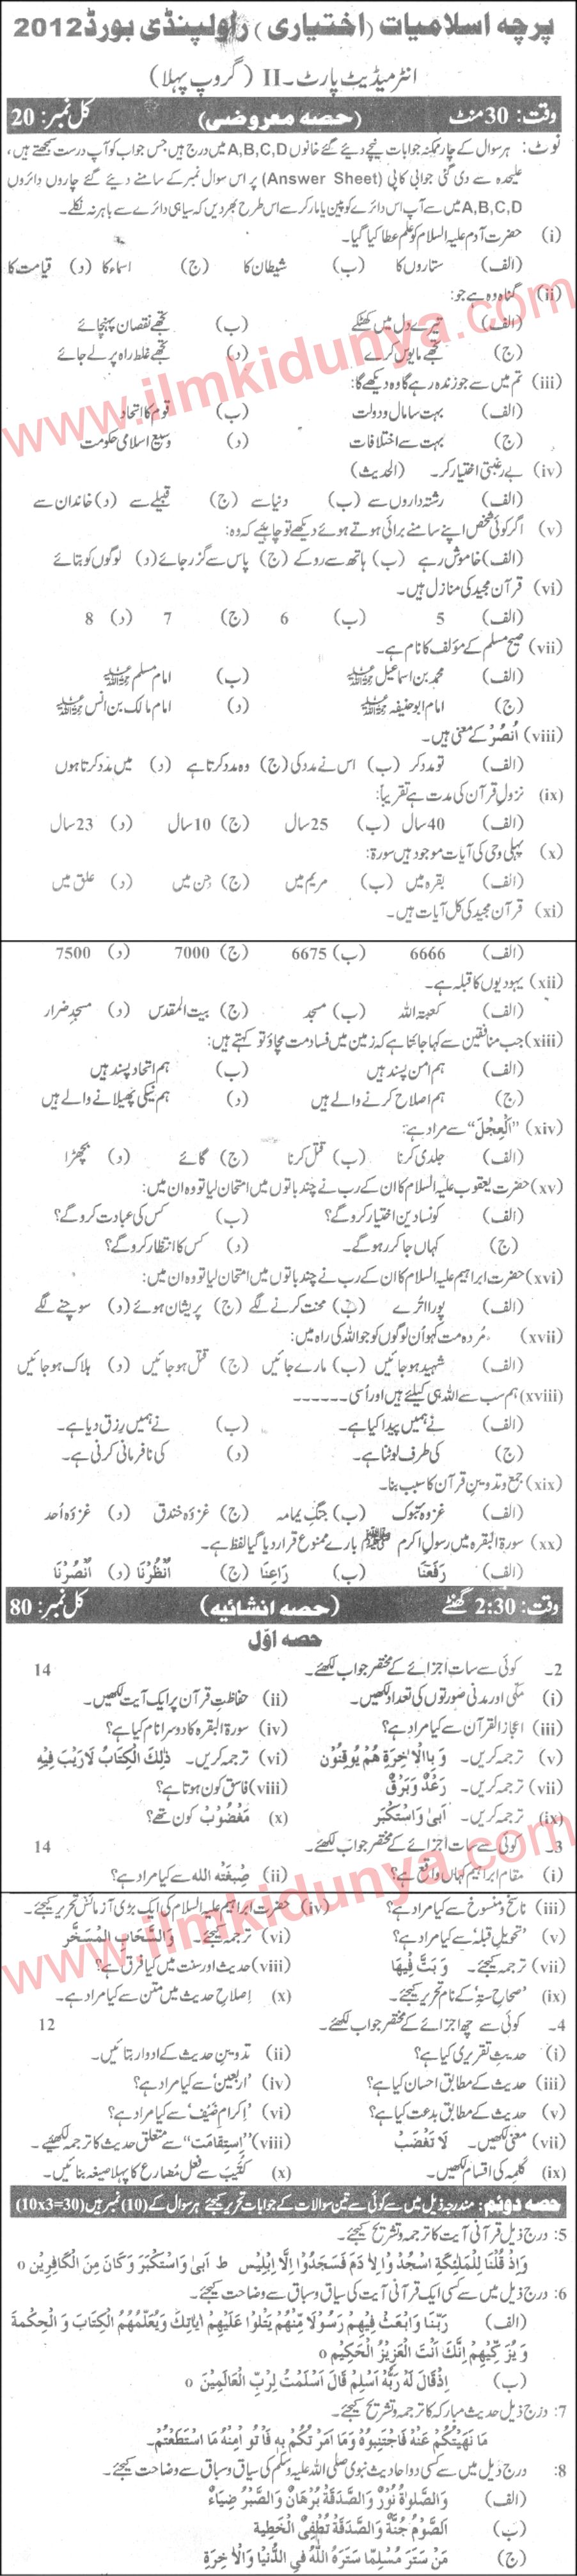 پرچہ اسلامیات (اختیاری) راولپنڈی بورڈ 2012
انٹرمیڈیٹ پارٹ۔ II (گروپ پہلا)
وقت: 30 منٹ (حصہ معروضی) کل نمبر: 20
نوٹ: ہر سوال کے چار ممکنہ جوابات نیچے دیئے گئے خانوں A,B,C,D میں درج ہیں جس جواب کو آپ درست سمجھتے ہیں،
علیحدہ سے دی گئی جوابی کاپی (Answer Sheet) پر اس سوال نمبر کے سامنے دیئے گئے چاروں دائروں
A,B,C,D میں سے آپ اس دائرے کو پین یا مارکر سے اس طرح بھر دیں کہ سیاہی دائرے سے باہر نہ نکلے۔
(i) حضرت آدم علیہ السلام کو علم عطا کیا گیا۔
(الف) ستاروں کا (ب) شیطان کا (ج) اسماء کا (د) قیامت کا
(ii) گناہ وہ ہے جو:
(الف) تیرے دل میں کھٹکے (ب) تجھے نقصان پہنچائے
(ج) تجھے مایوس کرے (د) تجھے غلط راہ پر لے جائے
(iii) تم میں سے جو زندہ رہے گا وہ دیکھے گا:
(الف) بہت سا مال و دولت (ب) قوم کا اتحاد
(ج) بہت سے اختلافات (د) وسیع اسلامی حکومت
(iv) بے رغبتی اختیار کر۔ (الحدیث)
(الف) رشتہ داروں سے (ب) دنیا سے (ج) قبیلے سے (د) خاندان سے
(v) اگر کوئی شخص اپنے سامنے برائی ہوتے ہوئے دیکھے تو چاہیے کہ وہ:
(الف) خاموش رہے (ب) ہاتھ سے روکے (ج) پاس سے گزر جائے (د) لوگوں کو بتائے
(vi) قرآن مجید کی منازل ہیں۔
(الف) 5 (ب) 6 (ج) 7 (د) 8
(vii) صحیح مسلم کے مؤلف کا نام ہے۔
(الف) محمد بن اسماعیل (ب) امام مسلم
(ج) امام ابو حنیفہ (د) امام مالک بن انس
(viii) اُنصُرْ کے معنی ہیں۔
(الف) تو مدد کر (ب) اس نے مدد کی (ج) وہ مدد کرتا ہے (د) میں مدد کرتا ہوں
(ix) نزول قرآن کی مدت ہے تقریباً:
(الف) 40 سال (ب) 25 سال (ج) 10 سال (د) 23 سال
(x) پہلی وحی کی آیات موجود ہیں سورۃ:
(الف) بقرہ میں (ب) مریم میں (ج) جن میں (د) علق میں
(xi) قرآن مجید کی کل آیات ہیں۔
(الف) 6666 (ب) 6675 (ج) 7000 (د) 7500
(xii) یہودیوں کا قبلہ ہے۔
(الف) کعبتہ اللہ (ب) مسجد (ج) بیت المقدس (د) مسجد ضرار
(xiii) جب منافقین سے کہا جاتا ہے کہ زمین میں فساد مت مچاؤ تو کہتے ہیں:
(الف) ہم امن پسند ہیں (ب) ہم اتحاد پسند ہیں
(ج) ہم اصلاح کرنے والے ہیں (د) ہم نیکی پھیلانے والے ہیں
(xiv) "اَلْعِجْلَ" سے مراد ہے:
(الف) جلدی کرنا (ب) قتل کرنا (ج) گائے (د) بچھڑا
(xv) حضرت یعقوب علیہ السلام کا ان کے رب نے چند باتوں میں امتحان لیا تو وہ ان میں:
(الف) کونسا دین اختیار کرو گے؟ (ب) کس کی عبادت کرو گے؟
(ج) کہاں جا کر رہو گے۔ (د) کس کا انتظار کرو گے؟
(xvi) حضرت ابراہیم علیہ السلام کا ان کے رب نے چند باتوں میں امتحان لیا تو وہ ان میں:
(الف) پورا اترے (ب) محنت کرنے لگے (ج) پریشان ہوئے (د) سوچنے لگے
(xvii) مُردہ مت کہو اُن لوگوں کو جو اللہ کی راہ میں:
(الف) شہید ہو جائیں (ب) مارے جائیں (ج) قتل ہو جائیں (د) ہلاک ہو جائیں
(xviii) ہم سب سے اللہ ہی کیلئے ہیں اور اُسی ------
(الف) نے ہمیں پیدا کیا ہے۔ (ب) نے ہمیں رزق دیا ہے۔
(ج) کی طرف لوٹنا ہے۔ (د) کی نافرمانی کرنی ہے۔
(xix) جمع و تدوین قرآن کا سبب بنا۔
(الف) غزوہ تبوک (ب) جنگ یمامہ (ج) غزوہ خندق (د) غزوہ اُحد
(xx) سورۃ البقرہ میں رسول اکرم ﷺ بارے ممنوع قرار دیا گیا لفظ ہے۔
(الف) رَفَعْنَا (ب) رَاعِنَا (ج) اُنْظُرْنَا (د) اُنْصُرْنَا
وقت: 2:30 گھنٹے (حصہ انشائیہ) کل نمبر: 80
حصہ اوّل
2۔ کوئی سے سات اجزائے کے مختصر جواب لکھئے۔ 14
(i) مکی اور مدنی صورتوں کی تعداد لکھیں۔ (ii) حفاظت قرآن پر ایک آیت لکھیں۔
(iii) اعجاز القرآن سے کیا مراد ہے؟ (iv) سورۃ البقرہ کا دوسرا نام کیا ہے؟
(v) ترجمہ کریں۔ وَبِاالْاٰخِرَۃِ ھُمْ یُوقِنُوْن (vi) ترجمہ کریں۔ ذٰلِکَ الْکِتَابُ لَارَیْبَ فِیْہِ
(vii) ترجمہ کریں۔ رَعْدٌ وَبَرْقٌ (viii) فاسق کون ہوتا ہے؟
(ix) ترجمہ کریں۔ اَبیٰ وَاسْتَکْبَر (x) مَغْضُوْبُ کون تھے؟
3۔ کوئی سے سات اجزائے کے مختصر جواب لکھئے۔ 14
(i) مقام ابراہیم کہاں واقع ہے؟ (ii) صِبْغَتہُ اللہ سے کیا مراد ہے؟
(iii) ناسخ و منسوخ سے کیا مراد ہے؟ (iv) حضرت ابراہیم علیہ السلام کی ایک بڑی آزمائش تحریر کیجئے۔
(v) 'تحویل قبلہ' سے کیا مراد ہے؟ (vi) ترجمہ کیجئے۔ وَالسَّحَابِ الْمُسَخَّر
(vii) ترجمہ کیجئے۔ وَبَثَّ فِیْھَا (viii) حدیث اور سنت میں کیا فرق ہے؟
(ix) 'صحاح ستہ' کے نام تحریر کیجئے۔ (x) اصلاح حدیث میں متن سے کیا مراد ہے۔
4۔ کوئی سے چھ اجزائے کے مختصر جواب لکھئے۔ 12
(i) حدیث تقریری کیا ہے؟ (ii) تدوین حدیث کے ادوار بتائیں۔
(iii) حدیث کے مطابق احسان کیا ہے؟ (iv) 'اربعین' سے کیا مراد ہے؟
(v) حدیث کے مطابق بدعت کیا ہے؟ (vi) 'اکرام ضَیْف' سے کیا مراد ہے؟
(vii) معنی لکھیں۔ لَا تَغْضَبْ (viii) "اِستِقامت" سے متعلق حدیث کا ترجمہ لکھیئے۔
(ix) کلمہ کی اقسام لکھیں۔ (x) کَتَبَ سے فعل مضارع کا پہلا صیغہ بنائیں۔
حصہ دوئم: مندرجہ ذیل میں سے کوئی سے تین سوالات کے جوابات تحریر کیجئے ہر سوال کے (10) نمبر ہیں (10x3=30)
5: درج ذیل قرآنی آیت کا ترجمہ و تشریح کیجئے۔
وَاِذْ قُلْنَا لِلْمَلٰئِکَۃِ اسْجُدُوْا لِاٰدَمَ فَسَجَدُوْا اِلَّا اِبْلِیْسَ ط اَبیٰ وَاسْتَکْبَرَ وَکَانَ مِنَ الْکَافِرِیْن o
6: درج ذیل میں سے کسی ایک قرآنی آیت کی سیاق و سباق سے وضاحت کیجئے۔
(الف) رَبَّنَا وَابْعَثْ فِیْھِمْ رَسُوْلًا مِّنْھُمْ یَتْلُوْا عَلَیْھِمْ اٰیَاتِکَ وَیُعَلِّمُھُمُ الْکِتَابَ وَالْحِکْمَۃَ
وَیُزَکِّیْھِمْ اِنَّکَ اَنْتَ الْعَزِیْزُ الْحَکِیْم o
(ب) اِذْقَالَ لَہٗ رَبُّہٗ اَسْلِمْ قَالَ اَسْلَمْتُ لِرَبِّ الْعَالَمِیْنَ o
7: درج ذیل حدیث مبارکہ کا ترجمہ و تشریح کیجئے۔
مَا نَھَیْتُکُمْ عَنْہُ فَاجْتَنِبُوْہُ وَمَا اَمَرْتُکُمْ بِہٖ فَأْتُوْ امِنْہُ مَا اسْتَطَعْتُمْ۔
8: درج ذیل میں سے کسی دو احادیث نبوی صلی اللہ علیہ وسلم کی سیاق و سباق سے وضاحت کیجئے۔
(الف) وَالصَّلٰوۃُ نُوْرٌ وَالصَّدَقَۃُ بُرْھَانٌ وَالصَّبْرُ ضِیَاءٌ
(ب) اَلصَّوْمُ جُنَّۃٌ وَالصَّدَقَۃُ تُطْفِیُٔ الْخَطِیَۃ
(ج) مَنْ سَتَرَ مُسْلِمًا سَتَرَہُ اللّٰہُ فِی الدُّنْیَا وَالْاٰخِرَۃِ
www.ilmkidunya.com
www.ilmkidunya.com